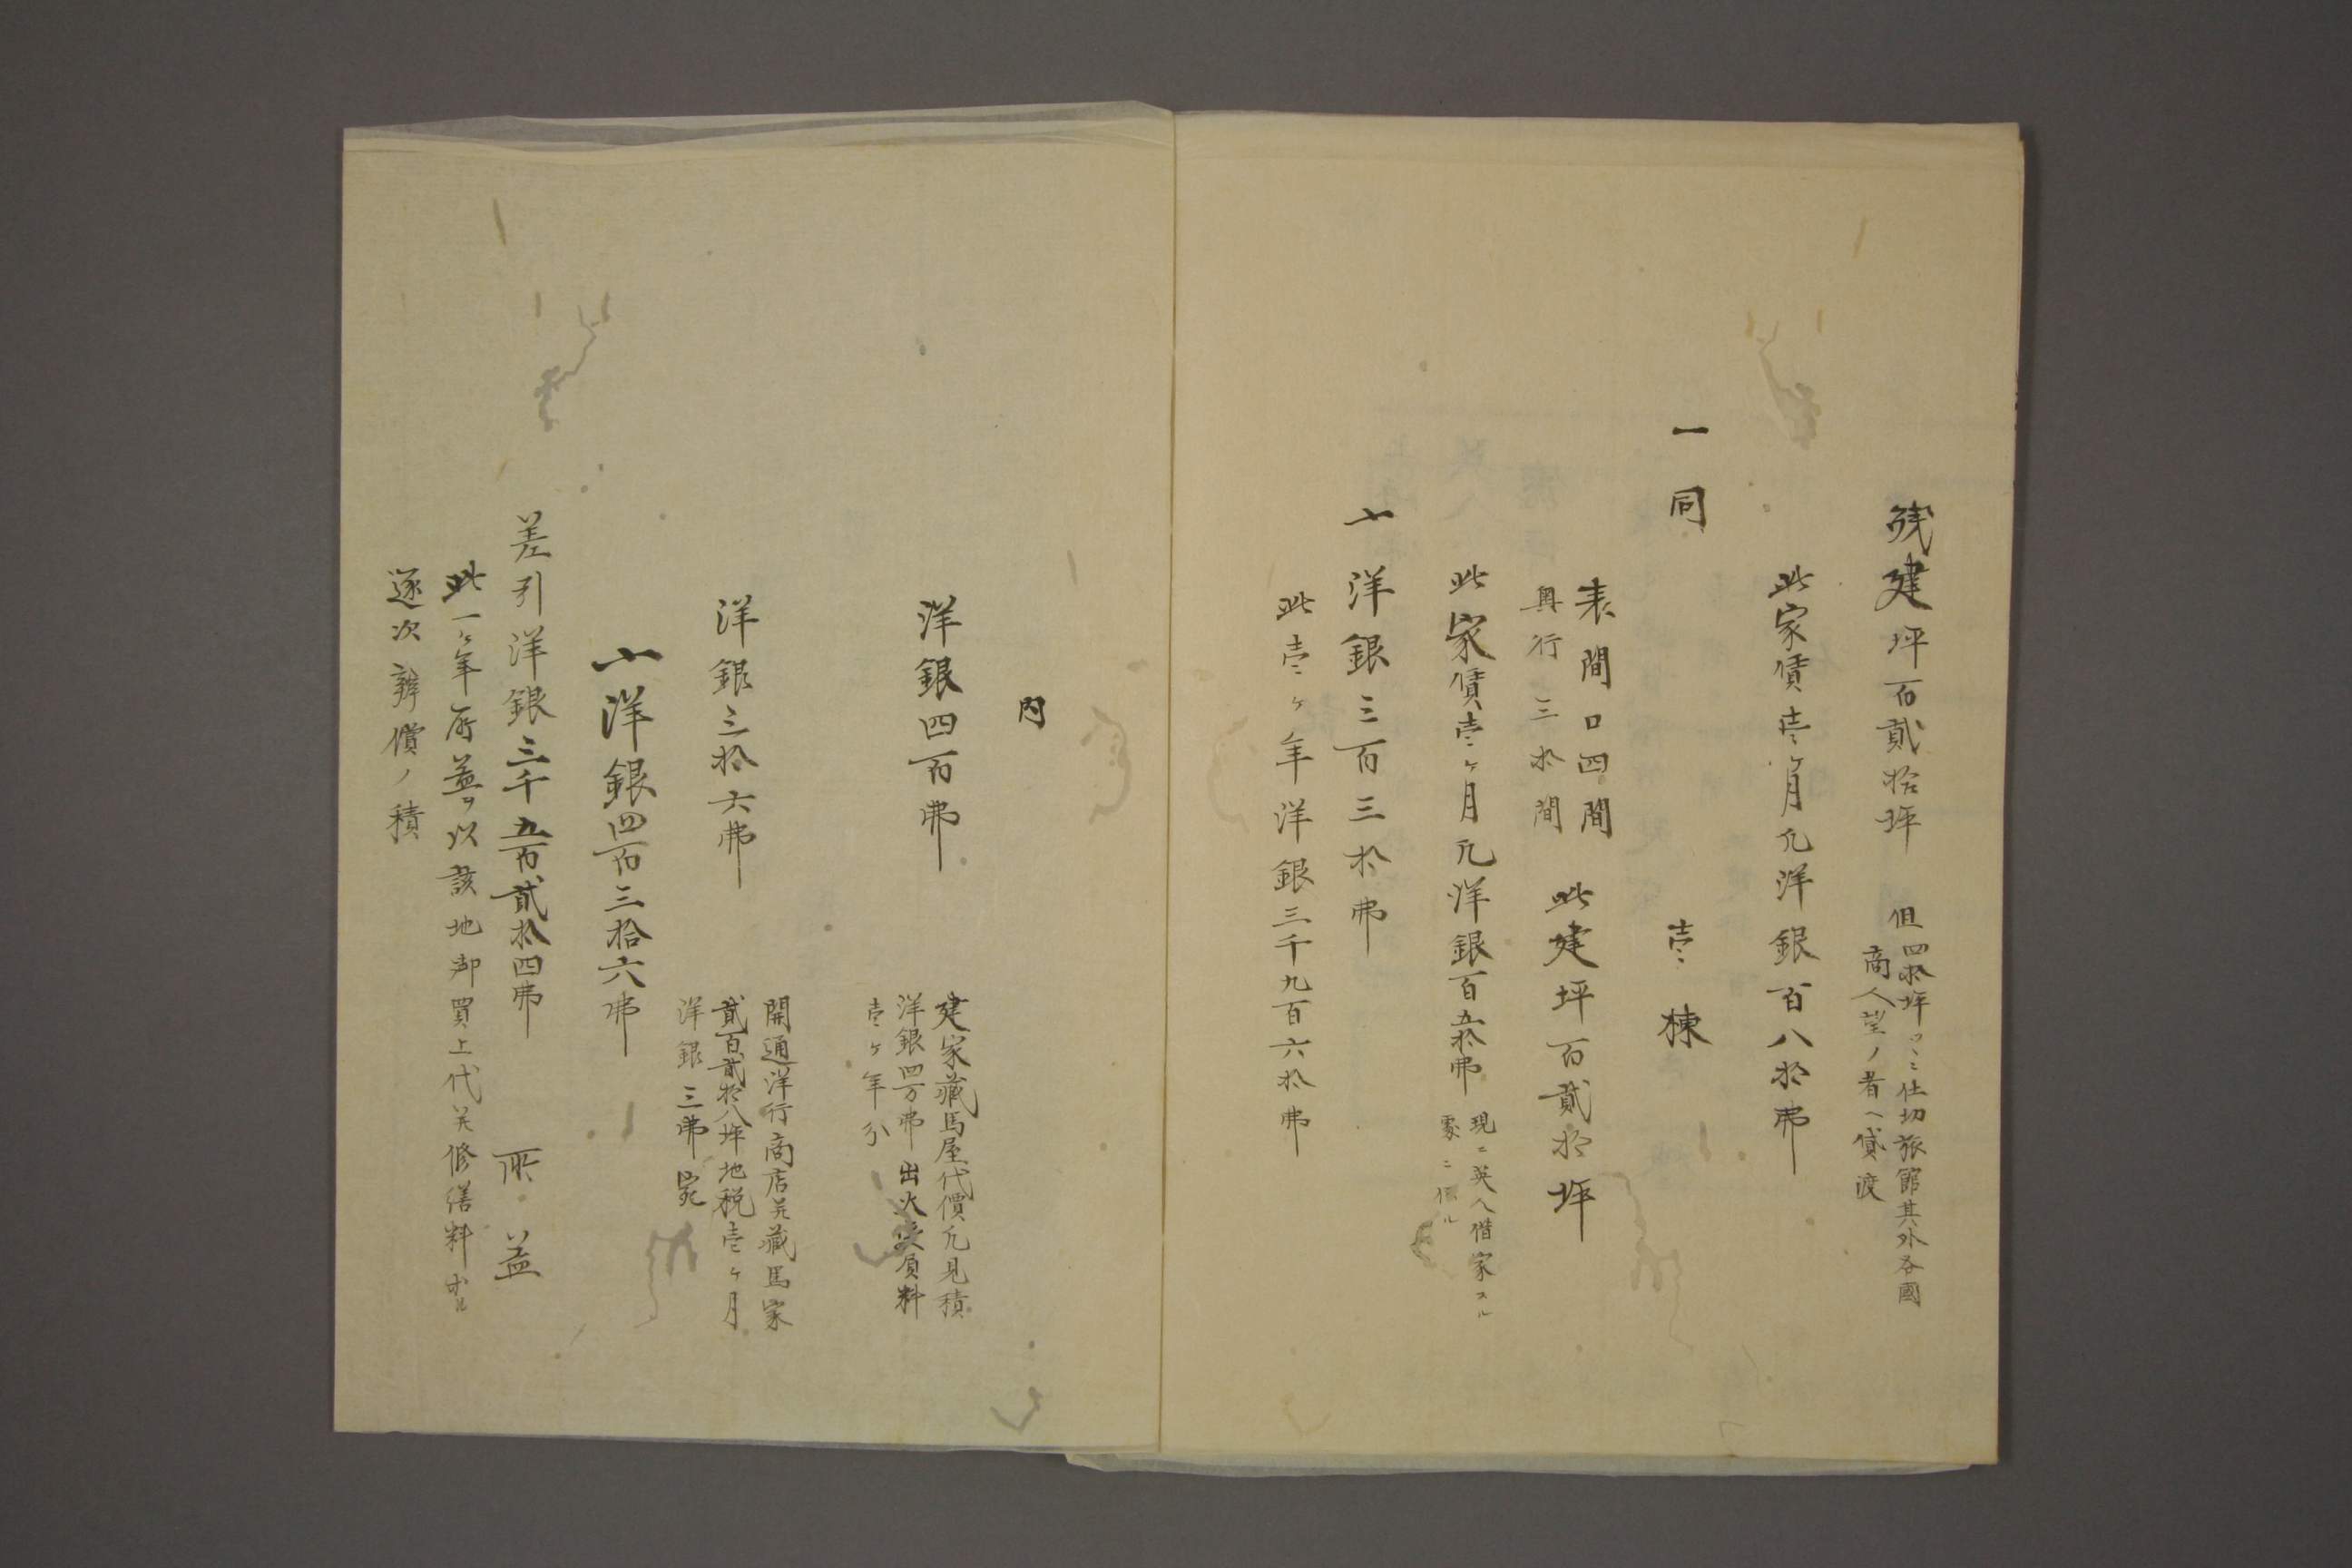 残建坪百貳拾坪
但四拾坪ツヽニ仕切旅館其外各國
商人望ノ者ヘ貸渡
此家賃壱ヶ月凢洋銀百八拾弗
一同 壱棟
表間口四間
奥行三拾間
此建坪百貳拾坪
此家賃壱ヶ月凢洋銀百五拾弗
現ニ英人借家スル
家ニ
〆洋銀三百三拾弗
此壱ヶ年洋銀三千九百六拾弗
内
洋銀四百弗
建家藏馬屋代價凢見積
洋銀四万弗出火受負料
壱ヶ年分
洋銀三拾六弗
開通洋行商店并藏馬家
貳百貳拾八坪地税壱ヶ月
洋銀三弗宛
〆洋銀四百三拾六弗
差引洋銀三千五百貳拾四弗 所益
此一ヶ年所益ヲ以該地御買上代并修繕料ホル
逐次辨償ノ積